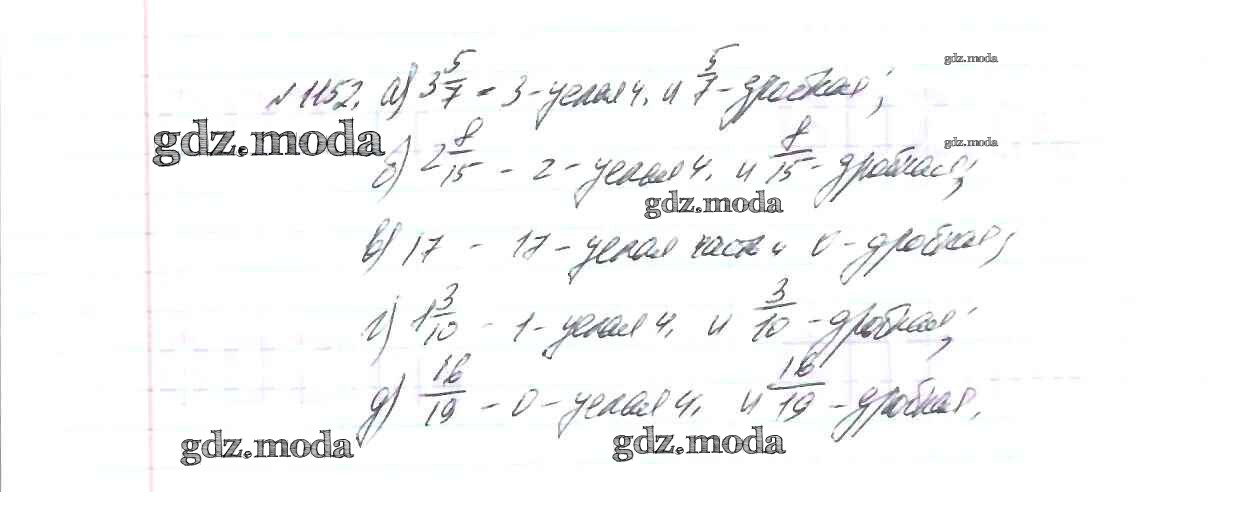 gdz.moda
№1152. а) 3 5/7 - 3 - целая ч. и 5/7 - дробная;
gdz.moda
gdz.moda
б) 2 8/15 - 2 - целая ч. и 8/15 - дробная;
gdz.moda
в) 17 - 17 - целая часть и 0 - дробная;
г) 1 3/10 - 1 - целая ч. и 3/10 - дробная;
д) 16/19 - 0 - целая ч. и 16/19 - дробная.
gdz.moda
gdz.moda